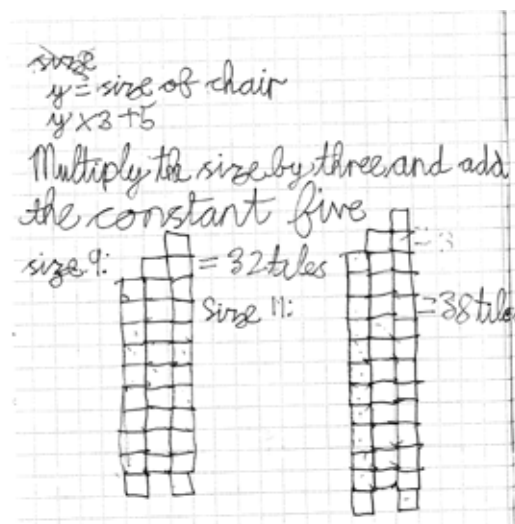 size
y = size of chair
y x3 +5
Multiply the size by three and add
the constant five
= 3
size 9: = 32 tiles
Size 11: = 38 tile